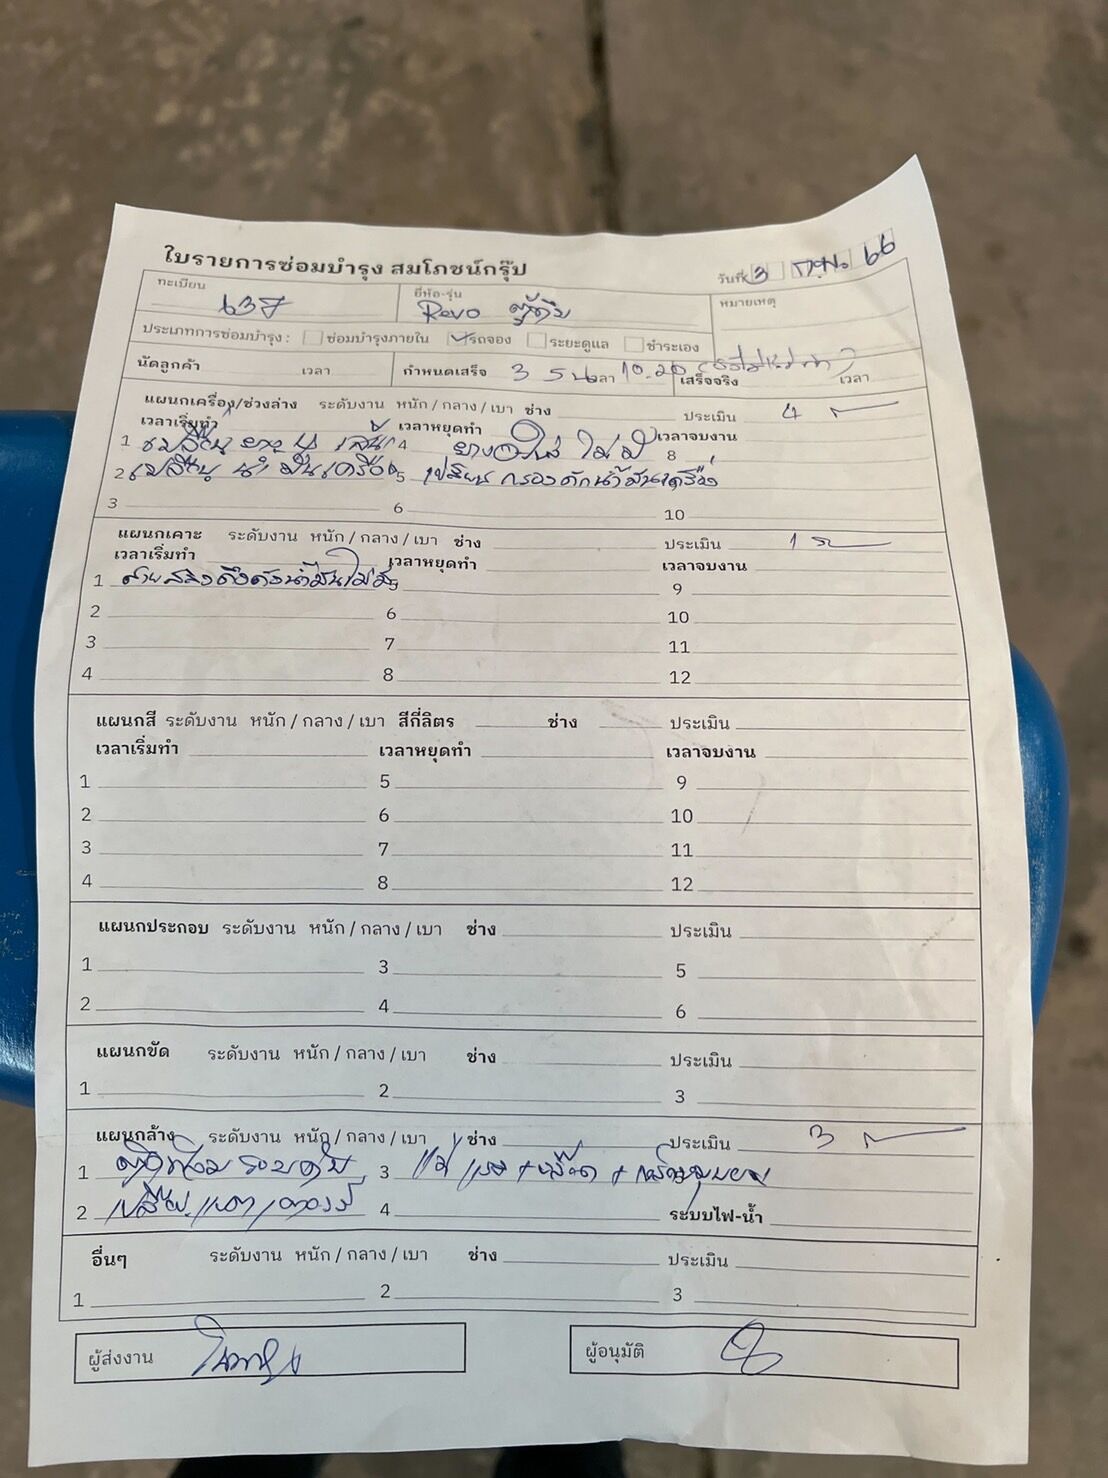 ใบรายการซ่อมบำรุง สมโภชน์กรุ๊ป
วันที่ 3 ก.พ. 66
ทะเบียน 637 ยี่ห้อ-รุ่น Revo ตู้ทึบ หมายเหตุ
ประเภทการซ่อมบำรุง : ซ่อมบำรุงภายใน รถจอง ระยะดูแล ชำระเอง
นัดลูกค้า เวลา กำหนดเสร็จ 3 เวลา 10.20 เสร็จจริง เวลา
แผนกเครื่อง/ช่วงล่าง ระดับงาน หนัก / กลาง / เบา ช่าง ประเมิน 4
เวลาเริ่มทำ เวลาหยุดทำ เวลาจบงาน
1 เปลี่ยนยาง 4 เส้น 4 ยางอะไหล่ ไม่มี 8
2 เปลี่ยนน้ำมันเครื่อง 5 เปลี่ยนกรองดักน้ำมันเครื่อง
3 6 10
แผนกเคาะ ระดับงาน หนัก / กลาง / เบา ช่าง ประเมิน 1
เวลาเริ่มทำ เวลาหยุดทำ เวลาจบงาน
1 ถังน้ำมันไม่มี 9
2 6 10
3 7 11
4 8 12
แผนกสี ระดับงาน หนัก / กลาง / เบา สีกี่ลิตร ช่าง ประเมิน
เวลาเริ่มทำ เวลาหยุดทำ เวลาจบงาน
1 5 9
2 6 10
3 7 11
4 8 12
แผนกประกอบ ระดับงาน หนัก / กลาง / เบา ช่าง ประเมิน
1 3 5
2 4 6
แผนกขัด ระดับงาน หนัก / กลาง / เบา ช่าง ประเมิน
1 2 3
แผนกล้าง ระดับงาน หนัก / กลาง / เบา ช่าง ประเมิน 3
1 3 แม่แรง +
2 เปลี่ยนแบตเตอรี่ 4 ระบบไฟ-น้ำ
อื่นๆ ระดับงาน หนัก / กลาง / เบา ช่าง ประเมิน
1 2 3
ผู้ส่งงาน ผู้อนุมัติ